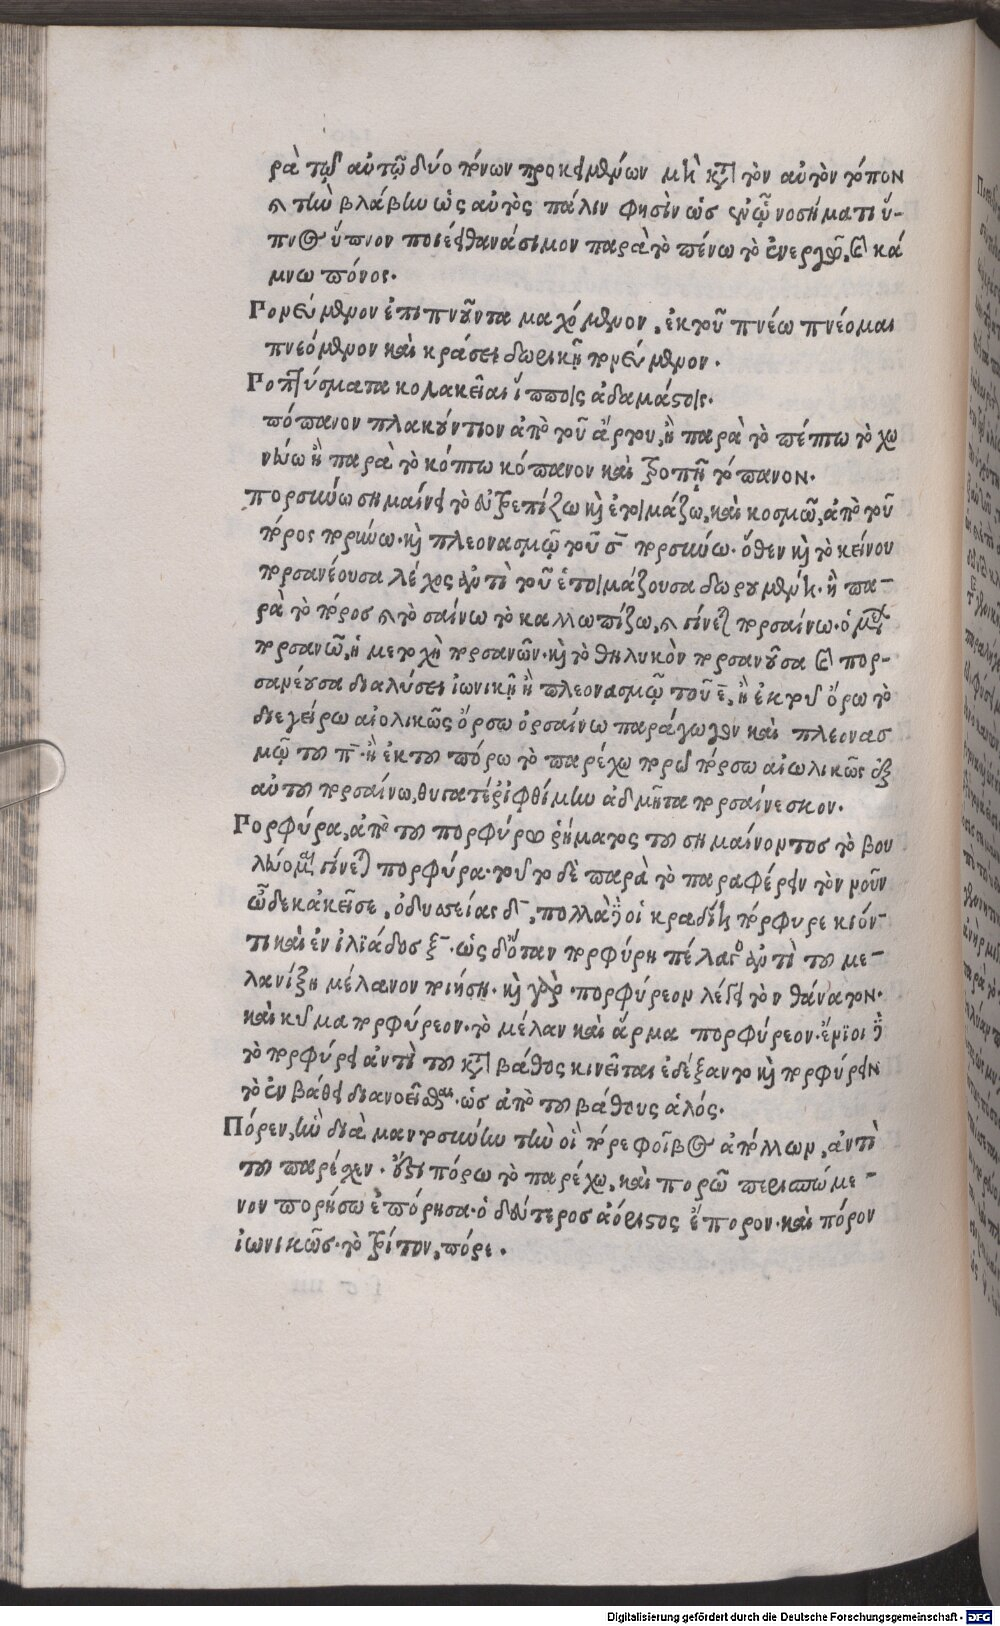 ρὰ τοῦ αὐτῶ δύο πόνων προκειμένων μὴ κατὰ τὸν αὐτὸν τόπον
τὴν βλάβην ὡς αὐτὸς πάλιν φησὶν ὡς ἐν ᾧ νοσήματι ὕ-
πνος ὕπνον ποιέει θανάσιμον παρὰ τὸ πένω τὸ ἐνεργῶ, καὶ κά
μνω πόνος.
Γορεύμενον ἐπιπνοῦντα μαχόμενον, ἐκ τοῦ πνέω πνέομαι
πνεόμενον καὶ κράσει δωρικῇ πνεύμενον.
Γοππύσματα κολακεῖαι ἵπποις ἀδαμάστοις.
πόπανον πλακούντιον ἀπὸ τοῦ ἄρτου, ἢ παρὰ τὸ πέπτω τὸ χω
νεύω ἢ παρὰ τὸ κόπτω κόπανον καὶ τροπῇ πόπανον.
πορσύνω σημαίνει τὸ εὐτρεπίζω καὶ ἑτοιμάζω, καὶ κοσμῶ, ἀπὸ τοῦ
πόρος πορύνω. καὶ πλεονασμῷ τοῦ σ πορσύνω. ὅθεν καὶ τὸ κείνου
πορσανέουσα λέχος ἀντὶ τοῦ ἑτοιμάζουσα δωρουμένη. ἢ πα-
ρὰ τὸ πόρος καὶ τὸ σαίνω τὸ καλλωπίζω, καὶ γίνεται πορσαίνω. ὁ μέλλων
πορσανῶ, ἡ μετοχὴ πορσανῶν. καὶ τὸ θηλυκὸν πορσανοῦσα καὶ πορ-
σανέουσα διαλύσει ἰωνικῇ ἢ πλεονασμῷ τοῦ ε, ἢ ἐκ τοῦ ὄρω τὸ
διεγείρω αἰολικῶς ὄρσω ὀρσαίνω παράγωγον καὶ πλεονασ
μῷ του π. ἢ ἐκ του πόρω τὸ παρέχω πορῶ πόρσω αἰωλικῶς ἐξ
αὐτου πορσαίνω, θυγατέρ ἰφθίμην ἀδμῆτα πορσαίνεσκον.
Γορφύρα, ἀπὸ του πορφύρω ῥήματος του σημαίνοντος τὸ βου
λεύομαι γίνεται πορφύρα. τοῦτο δὲ παρὰ τὸ παραφέρειν τὸν νοῦν
ὧδε κἀκεῖσε, ὀδυσσείας δ, πολλὰ δέ οἱ κραδίη πόρφυρε κιόν-
τι καὶ ἐν ἰλϊάδος ξ. ὡς δ' ὅταν πορφύρη πέλαγος ἀντὶ του με-
λανίξη μέλανον ποιήση. καὶ γὰρ πορφύρεον λέγει τὸν θάνατον.
καὶ κῦμα πορφύρεον. τὸ μέλαν καὶ ἅρμα πορφύρεον. ἔνϊοι δὲ
τὸ πορφύρει ἀντὶ του κατὰ βάθος κινεῖται ἐδέξαντο καὶ πορφύρειν
τὸ ἐν βάθει διανοεῖσθαι. ὡς ἀπὸ του βάθους ἁλός.
Πόρεν, ἣν διὰ μαντοσύνην τὴν οἵ πόρε φοῖβος ἀπόλλων, ἀντὶ
του παρέχεν. ἔστι πόρω τὸ παρέχω, καὶ πορῶ περισπώμε-
νον πορήσω ἐπόρησα. ὁ δεύτερος ἀόριστος ἔπορον. καὶ πόρον
ἰωνικῶς. τὸ τρίτον, πόρε.
Digitalisierung gefördert durch die Deutsche Forschungsgemeinschaft - DFG